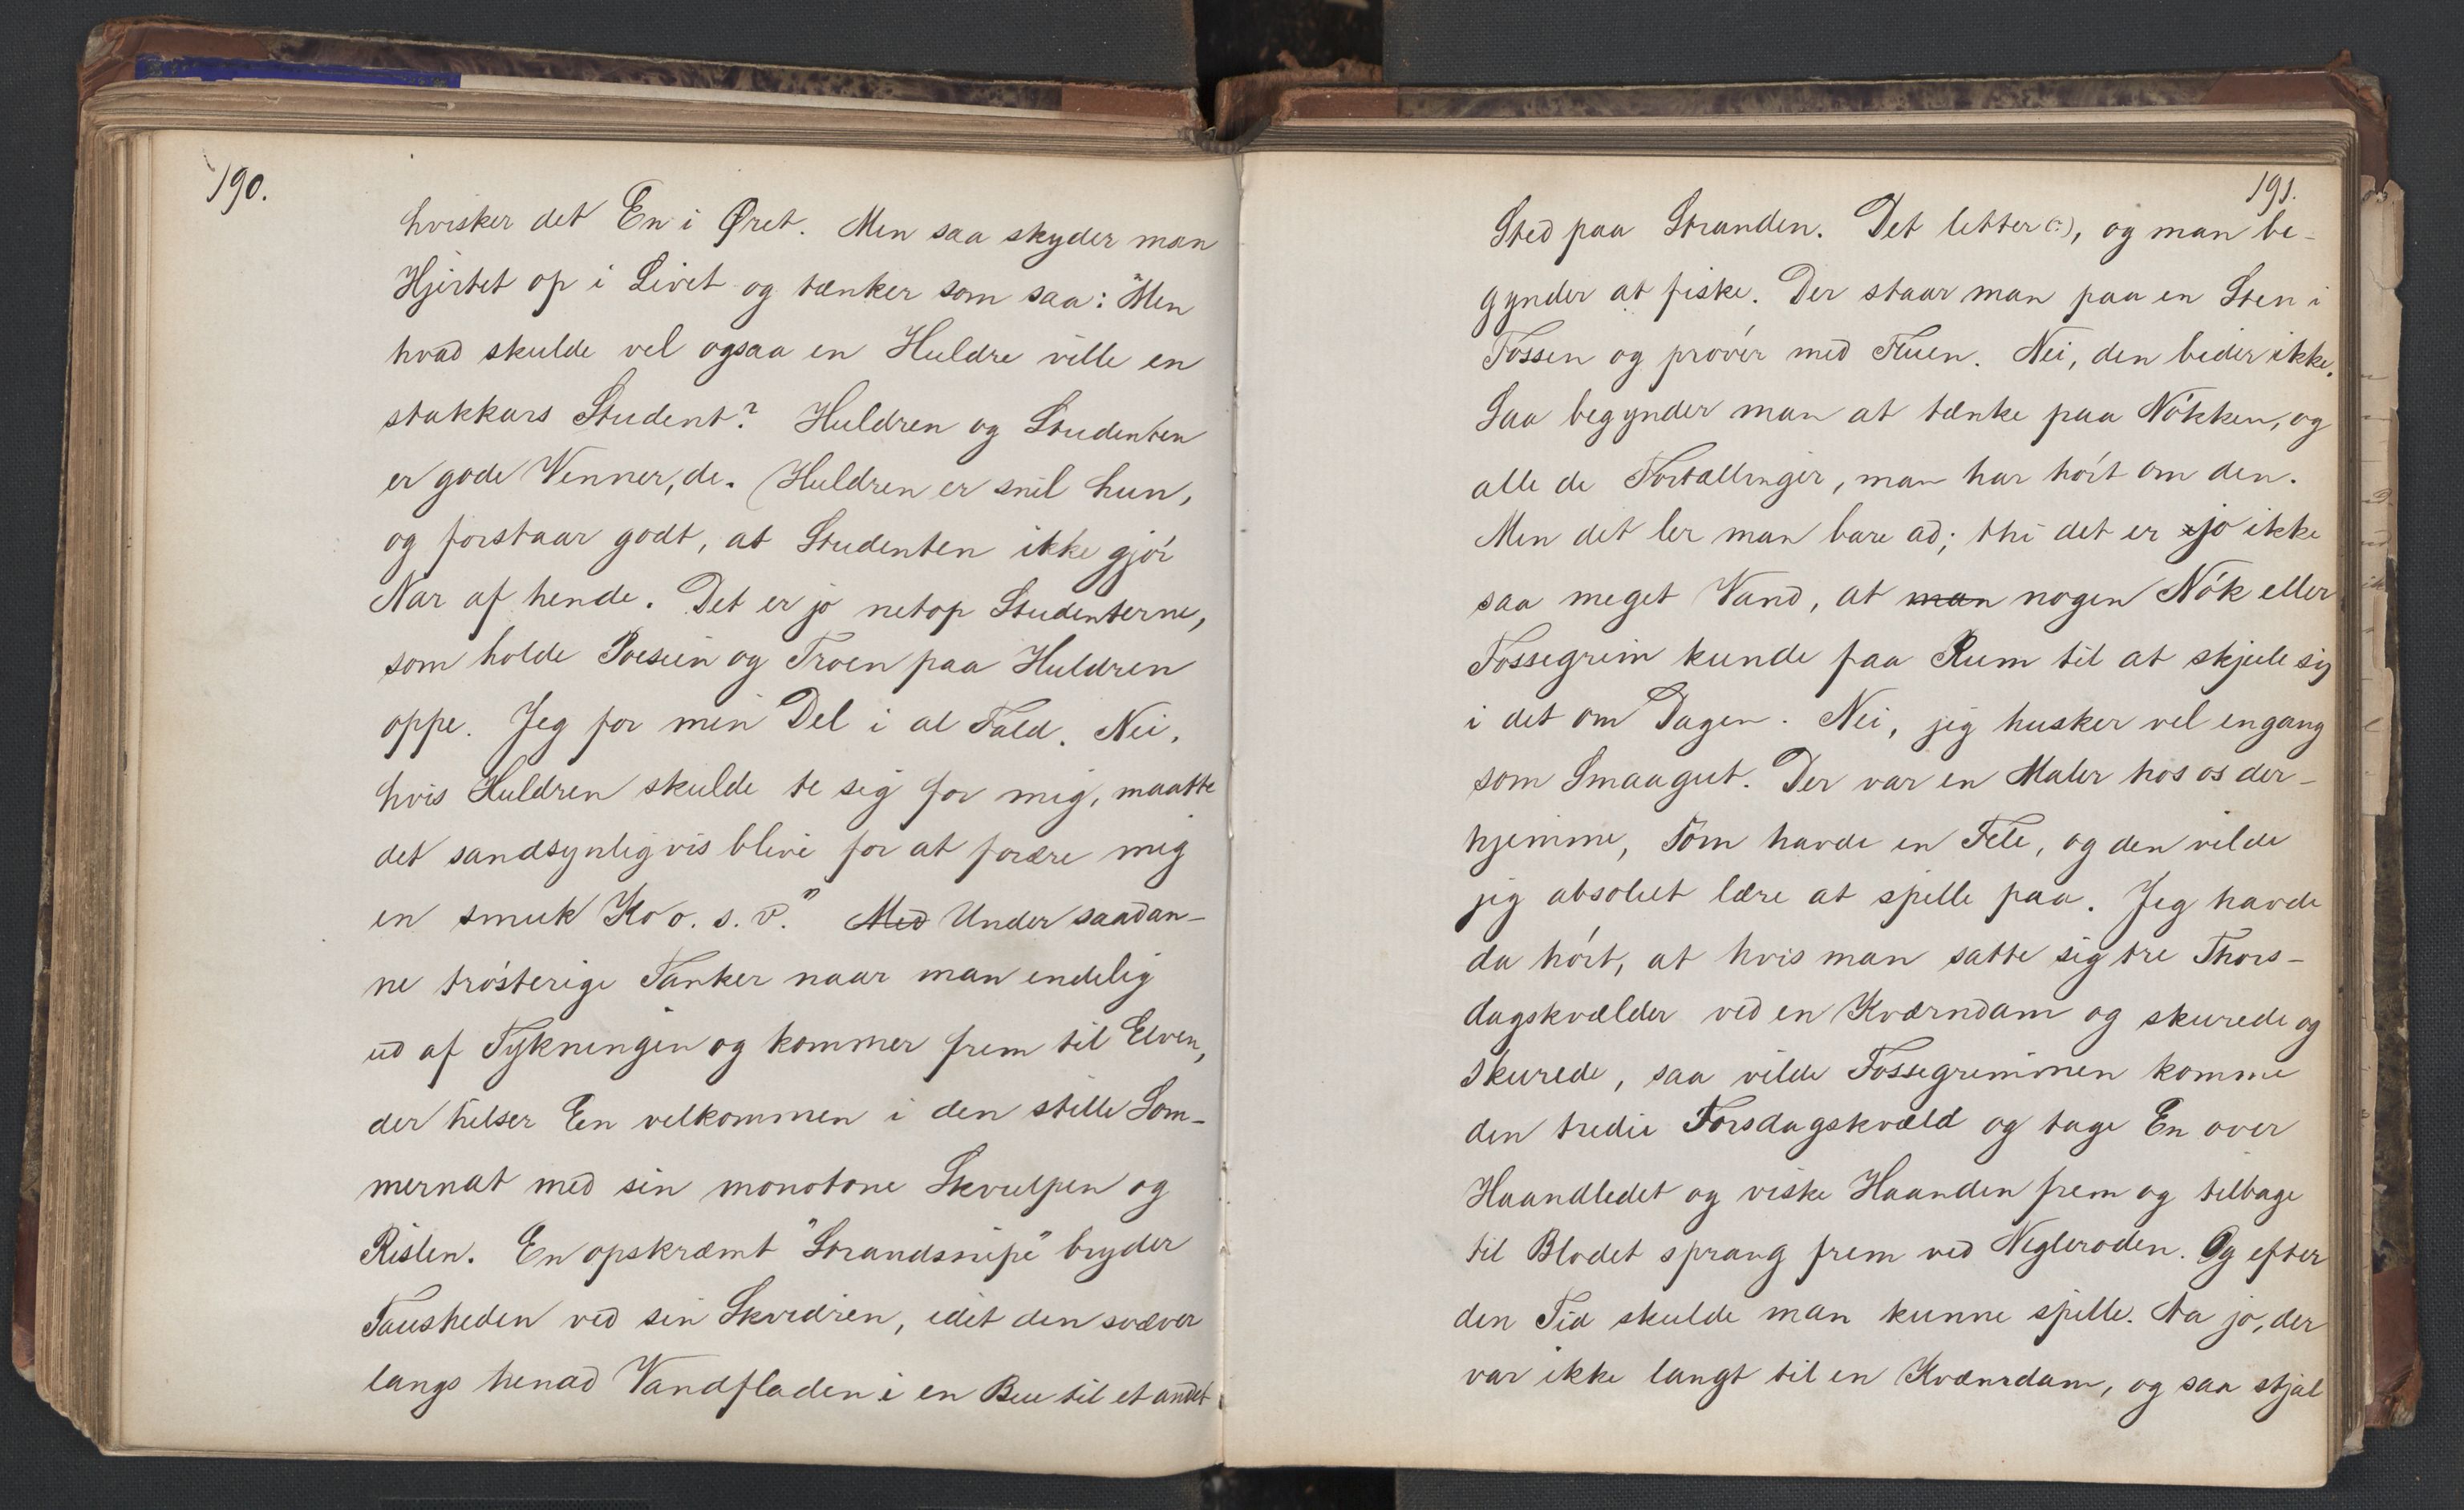 190.
hvisker det En i Øret. Men saa skyder man
Hjertet op i Livet og tænker som saa: "Men
hvad skulde vel ogsaa en Huldre ville en
stakkars Student? Huldren og Studenten
er gode Venner, de. Huldren er snil hun,
og forstaar godt, at Studenten ikke gjør
Nar af hende. Det er jo netop Studenterne,
som holde Poesien og Troen paa Huldren
oppe. Jeg for min Del i al Fald. Nei,
hvis Huldren skulde te sig for mig, maatte
det sandsynligvis blive for at forære mig
en smuk Ko o. s. v." Med Under saadan-
ne trøsterige Tanker naar man endelig
ud af Tykningen og kommer frem til Elven,
der hilser En velkommen i den stille Som-
mernat med sin monotone Skvulpen og
Rislen. En opskræmt "Strandsnipe" bryder
Tausheden ved sin Skvidren, idet den svæver
langs henad Vandfladen i en Bue til et andet
191.
Sted paa Stranden. Det letter (:), og man be-
gynder at fiske. Der staar man paa en Sten i
Fossen og prøver med Fluen. Nei, den bider ikke.
Saa begynder man at tænke paa Nøkken, og
alle de Fortællinger, man har hørt om den.
Men det ler man bare ad; thi det er jo ikke
saa meget Vand, at man nogen Nøk eller
Fossegrim kunde faa Rum til at skjule sig
i det om Dagen. Nei, jeg husker vel engang
som Smaagut. Der var en Maler hos os der-
hjemme, som havde en Fele, og den vilde
jeg absolut lære at spille paa. Jeg havde
da hørt, at hvis man satte sig tre Thors-
dagskvælder ved en Kværndam og skurede og
skurede, saa vilde Fossegrimmen komme
den tredie Torsdagskvæld og tage En over
Haandledet og viske Haanden frem og tilbage
til Blodet sprang frem ved Negleroden. Og efter
den Tid skulde man kunne spille. Aa jo, der
var ikke langt til en Kværndam, og saa stjal